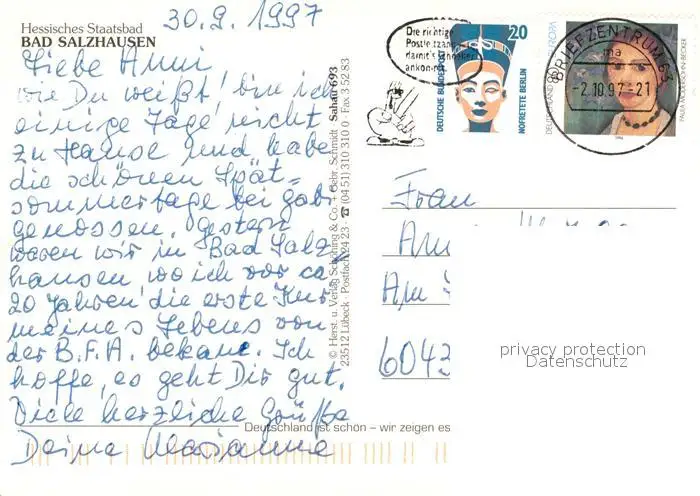 30.9.1997
Hessisches Staatsbad
BAD SALZHAUSEN
Liebe Anni
wie Du weißt, bin ich
einige Tage nicht
zu Hause und habe
die schönen Spät=
sommertage bei Gabi
genossen. Gestern
waren wir in Bad Salz
hausen, wo ich vor ca
20 Jahren die erste Kur
meines Lebens von
der B.F.A. bekam. Ich
hoffe, es geht Dir gut.
Viele herzliche Grüße
Deine Marianne
© Herst. u. Verlag Schöning & Co. + Gebr. Schmidt · Sahau 693
23512 Lübeck · Postfach 24 23 · ☎ (04 51) 310 310 0 · Fax 3 52 83
Deutschland ist schön – wir zeigen es
Die richtige
Postleitzahl
damit's schneller
ankommt
20
DEUTSCHE BUNDESPOST
NOFRETETE BERLIN
DEUTSCHLAND
EUROPA
PAULA MODERSOHN-BECKER
BRIEFZENTRUM 63
ma
-2.10.97-21
Frau
Am
6043
privacy protection
Datenschutz